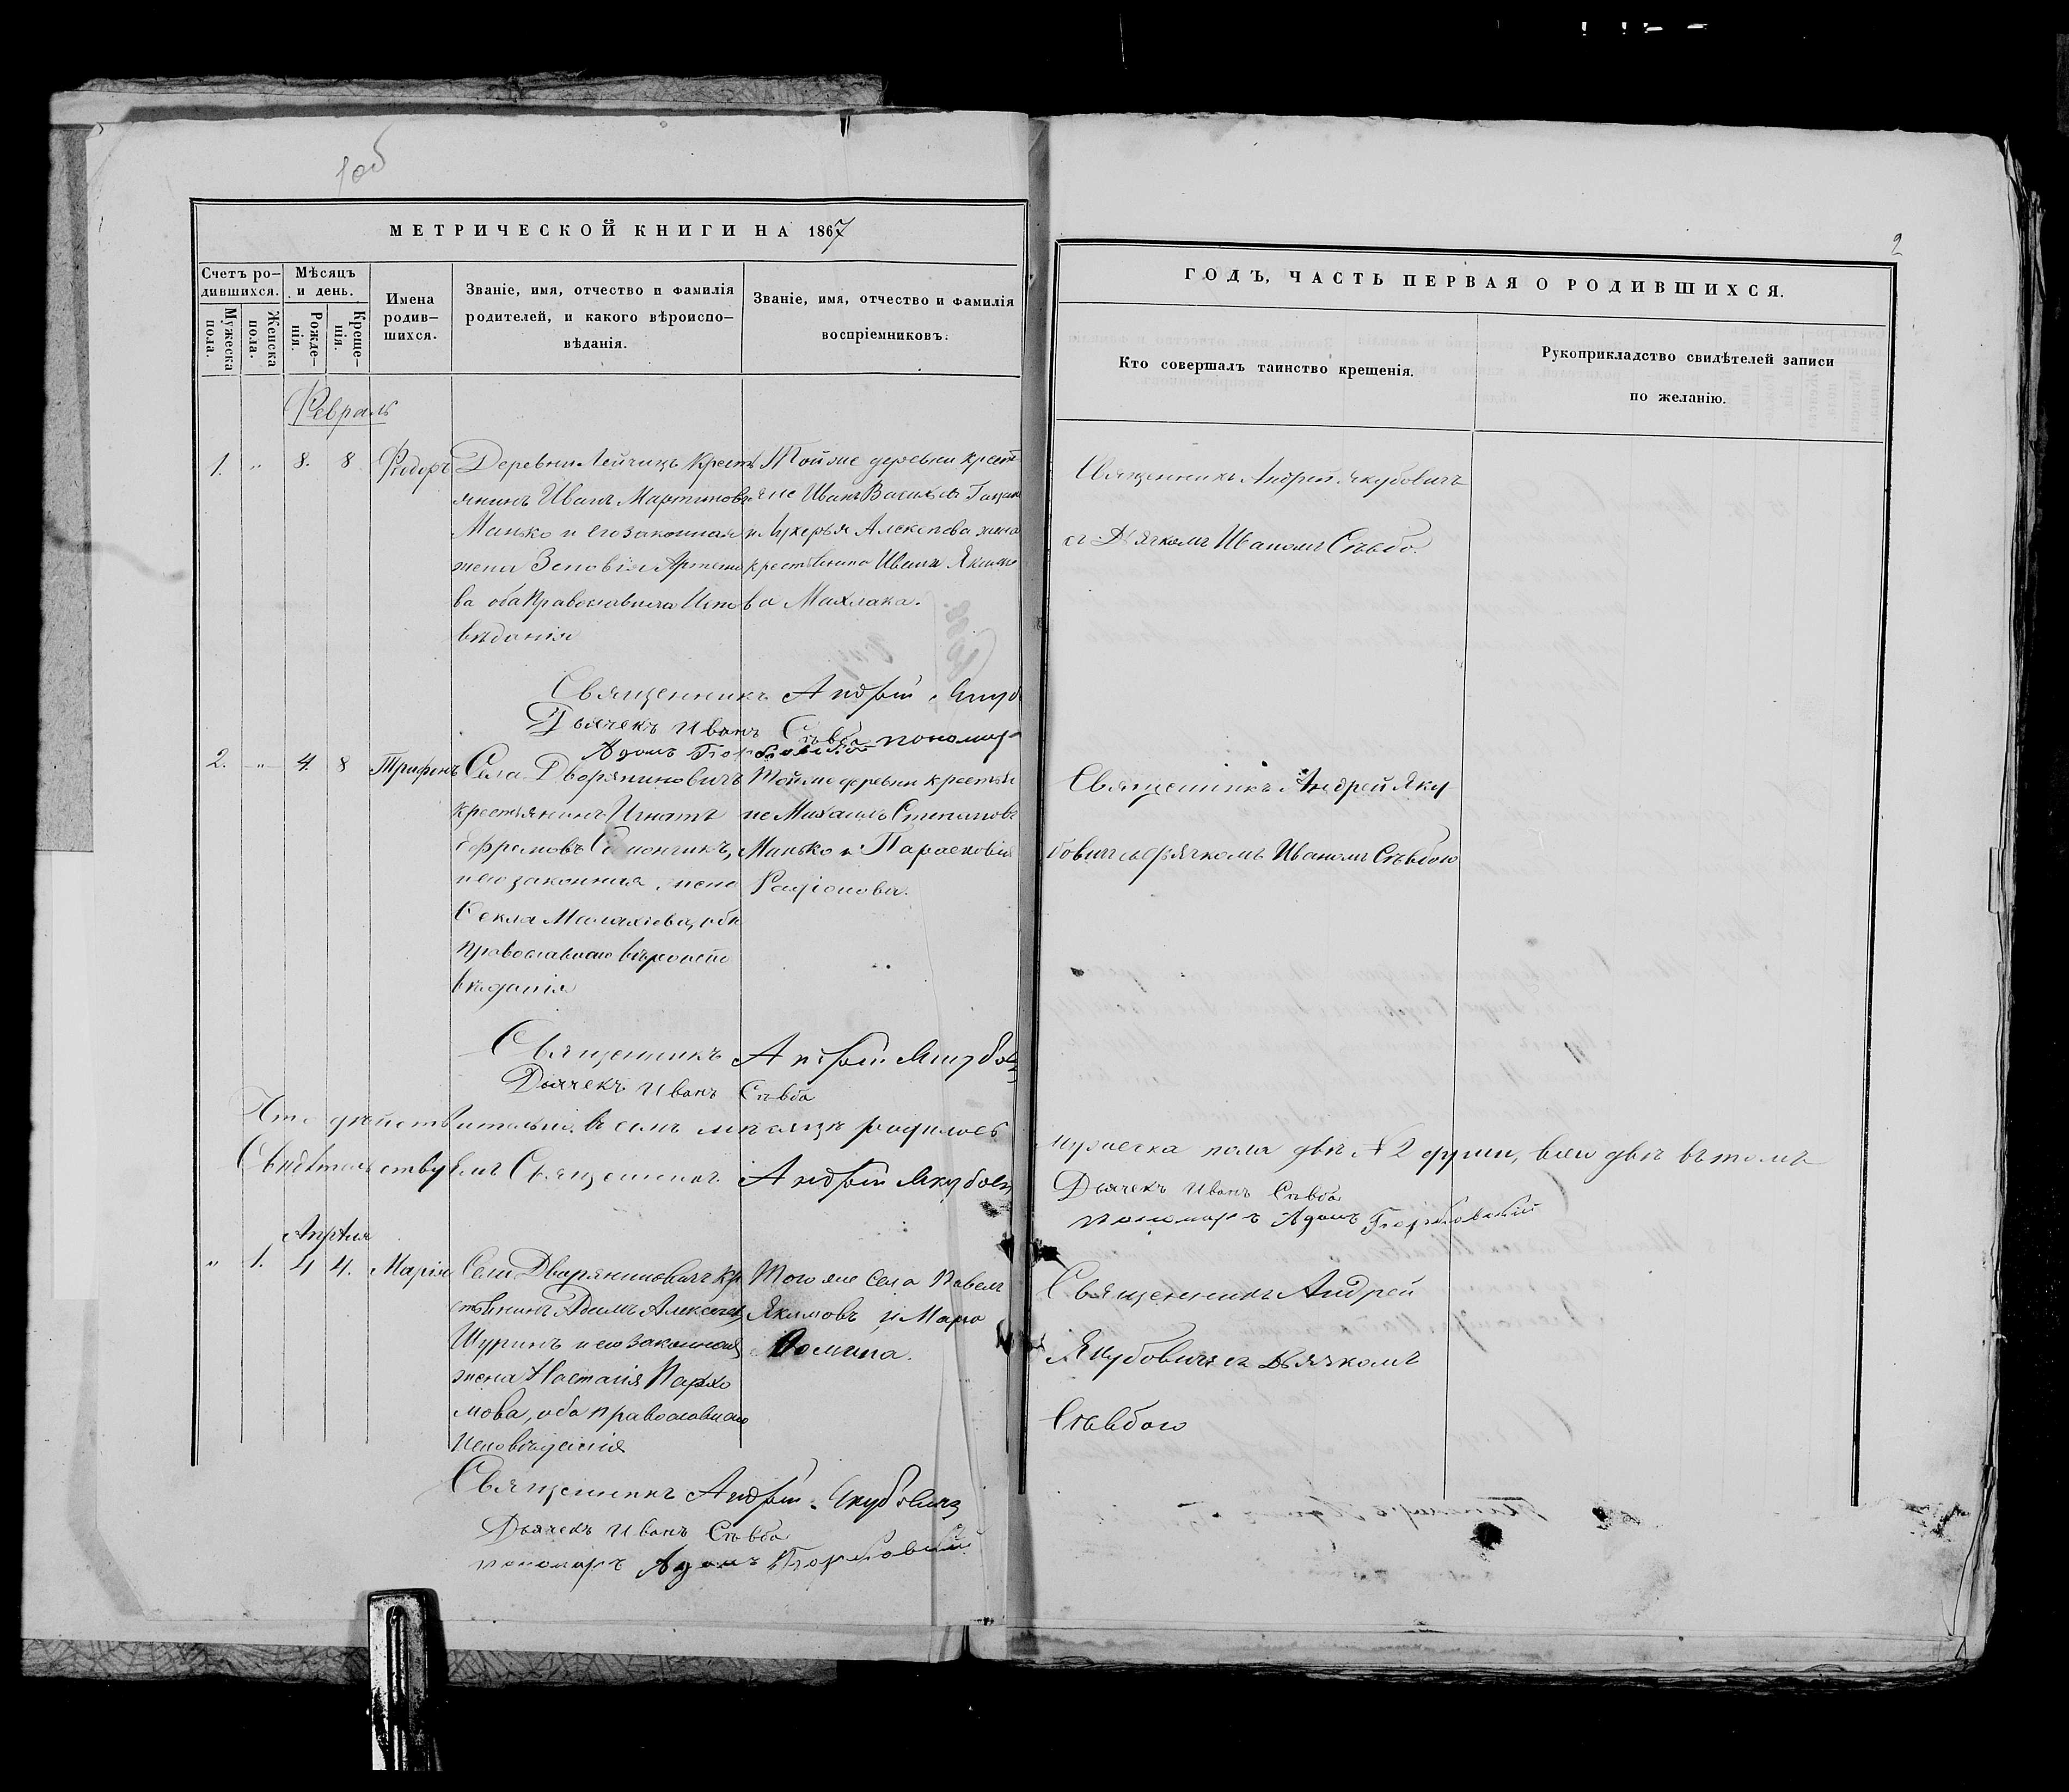 1об
МЕТРИЧЕСКОЙ КНИГИ НА 1867
Счетъ ро-
дившихся.
Мужеска
пола.
Женска
пола.
Мѣсяцъ
и день.
Рожде-
нія.
Креще-
нія.
Имена
родив-
шихся.
Званіе, имя, отчество и фамилія
родителей, и какого вѣроиспо-
вѣданія.
Званіе, имя, отчество и фамилія
воспріемниковъ.
Февраль
1. „ 8. 8
Ѳедоръ
Деревни Лейчицъ Кресть
янинъ Иванъ Мартиновъ
Манько и его законная
жена Зеновія Артемо
ва оба Православнаго Испо
вѣданія
Тойже деревни крестья
не Иванъ
и Лукерья Алексеева жена
крестьянина Ивана Якимо
ва Махлака.
Священникъ Андрей Якубо
Дьячекъ Иванъ Сѣвба пономарь
Адамъ
2. „ 4. 8
Трифонъ
Села Дворяниновичъ
крестьянинъ Игнатъ
Ефремовъ
и его законная жена
Ѳекла Малахіева, оба
православнаго вѣроиспо
вѣданія
Тойже деревни крестья
не Михаилъ Степановъ
Манько и Парасковія
Родіонова.
Священникъ Андрей Якубов
Дьячекъ Иванъ Сѣвба
Что дѣйствительно въ семъ мѣсяцѣ родилось
Свидѣтельствуемъ Священникъ Андрей Якубович
Апрѣля
„ 1. 4 4.
Марія
Села Дворяниновичъ кр
стьянинъ Адамъ Алексеев
Шуринъ и его законная
жена Настасія Пархо
мова, оба православнаго
Исповѣданія
Того же Села Павелъ
Якимовъ и Марѳа
Ѳомина.
Священникъ Андрей Якубовичъ
Дьячекъ Иванъ Сѣвба
пономарь Адамъ
2
ГОДЪ, ЧАСТЬ ПЕРВАЯ О РОДИВШИХСЯ.
Кто совершалъ таинство крещенія.
Рукоприкладство свидѣтелей записи
по желанію.
Священникъ Андрей Якубовичъ
съ Дьячкомъ Иваномъ Сѣвбо.
Священникъ Андрей Яку
бовичъ съ Дьячкомъ Иваномъ Сѣвбою
мужеска пола двѣ № 2 души, всего двѣ въ томъ
Дьячекъ Иванъ Сѣвба
пономарь Адамъ
Священникъ Андрей
Якубовичъ съ Дьячкомъ
Сѣвбою